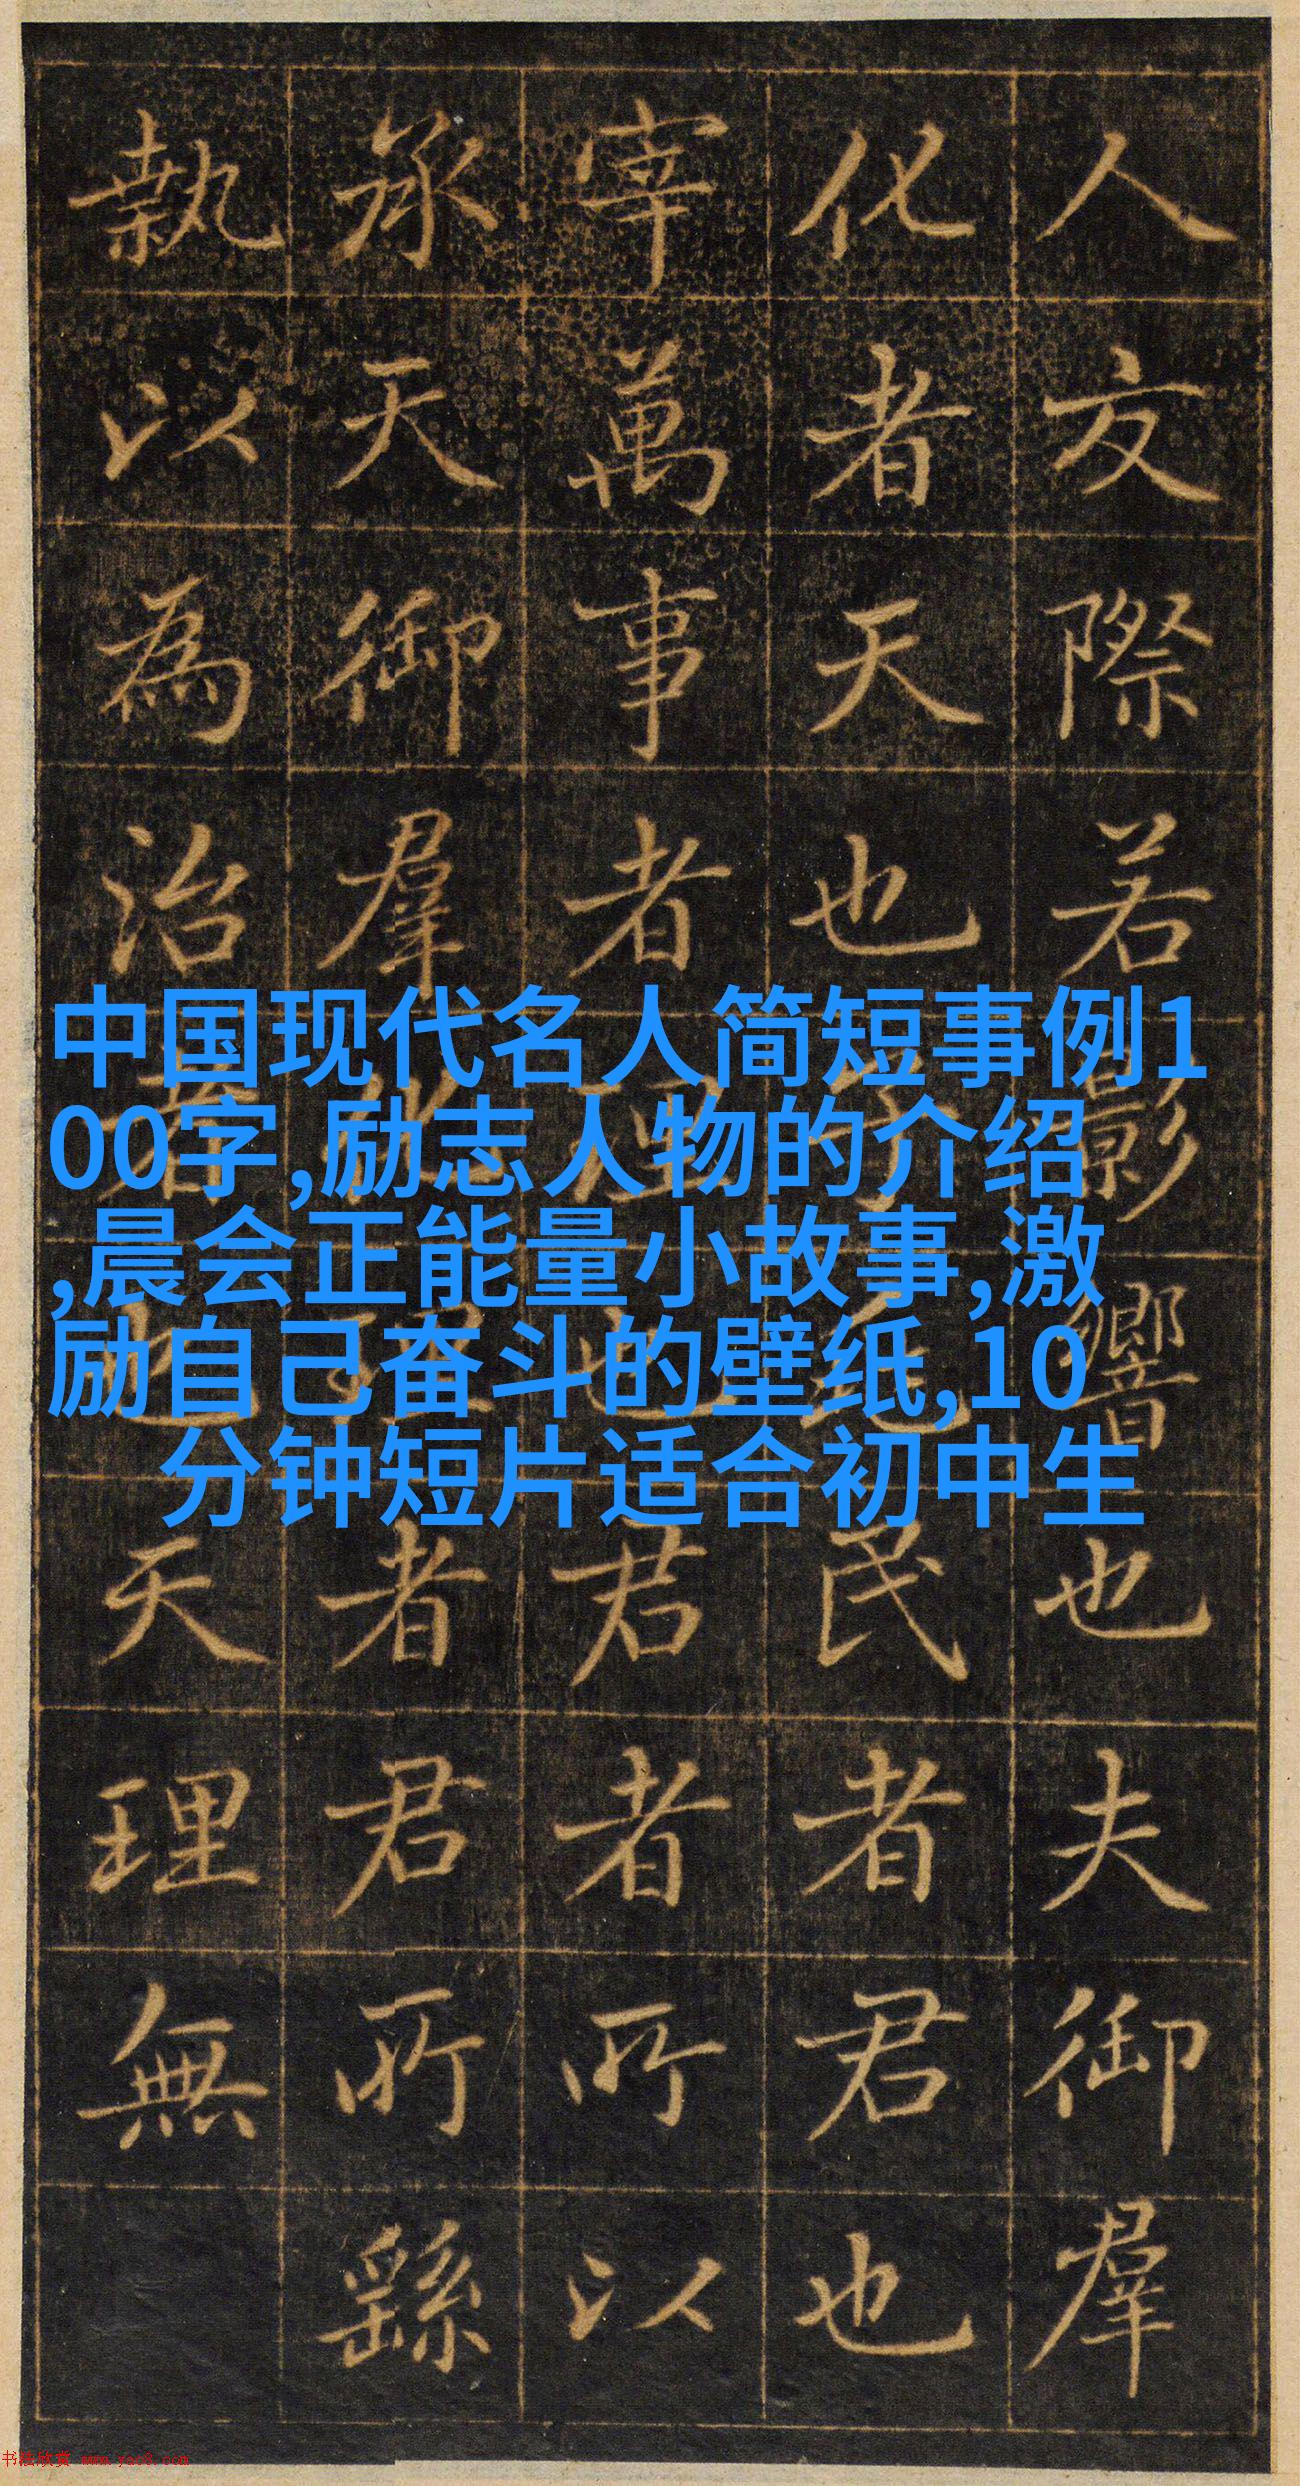 人交際若影響也夫御羣
化者天也子民者君也
宰萬事者理也君者所以
承天御羣化理者君所繇
執以為治者也天理無
中国现代名人简短事例1
00字,励志人物的介绍
,晨会正能量小故事,激
励自己奋斗的壁纸,10
分钟短片适合初中生
书法欣赏 www.yac8.com